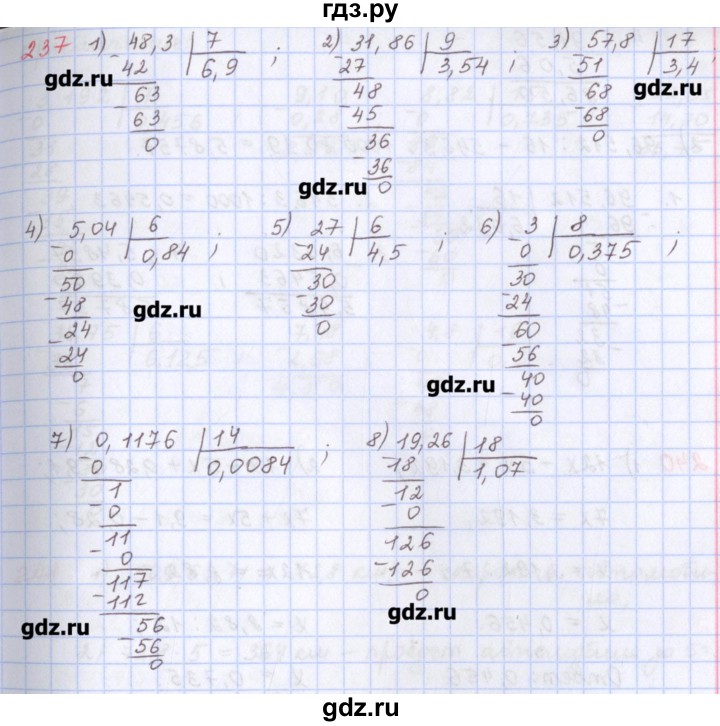 гдз.ру
237 1) 48,3 | 7 ; 2) 31,86 | 9 ; 3) 57,8 | 17 ;
42 6,9 27 3,54 51 3,4
63 48 68
63 45 68
0 36 0
36
0
gdz.ru
gdz.ru
gdz.ru
4) 5,04 | 6 ; 5) 27 | 6 ; 6) 3 | 8 ;
0 0,84 24 4,5 0 0,375
50 30 30
48 30 24
24 0 60
24 56
0 40
40
0
gdz.ru
gdz.ru
7) 0,1176 | 14 ; 8) 19,26 | 18
0 0,0084 18 1,07
1 12
0 0
11 126
0 126
117 0
112
56
56
0
gdz.ru
gdz.ru
гдз.ру